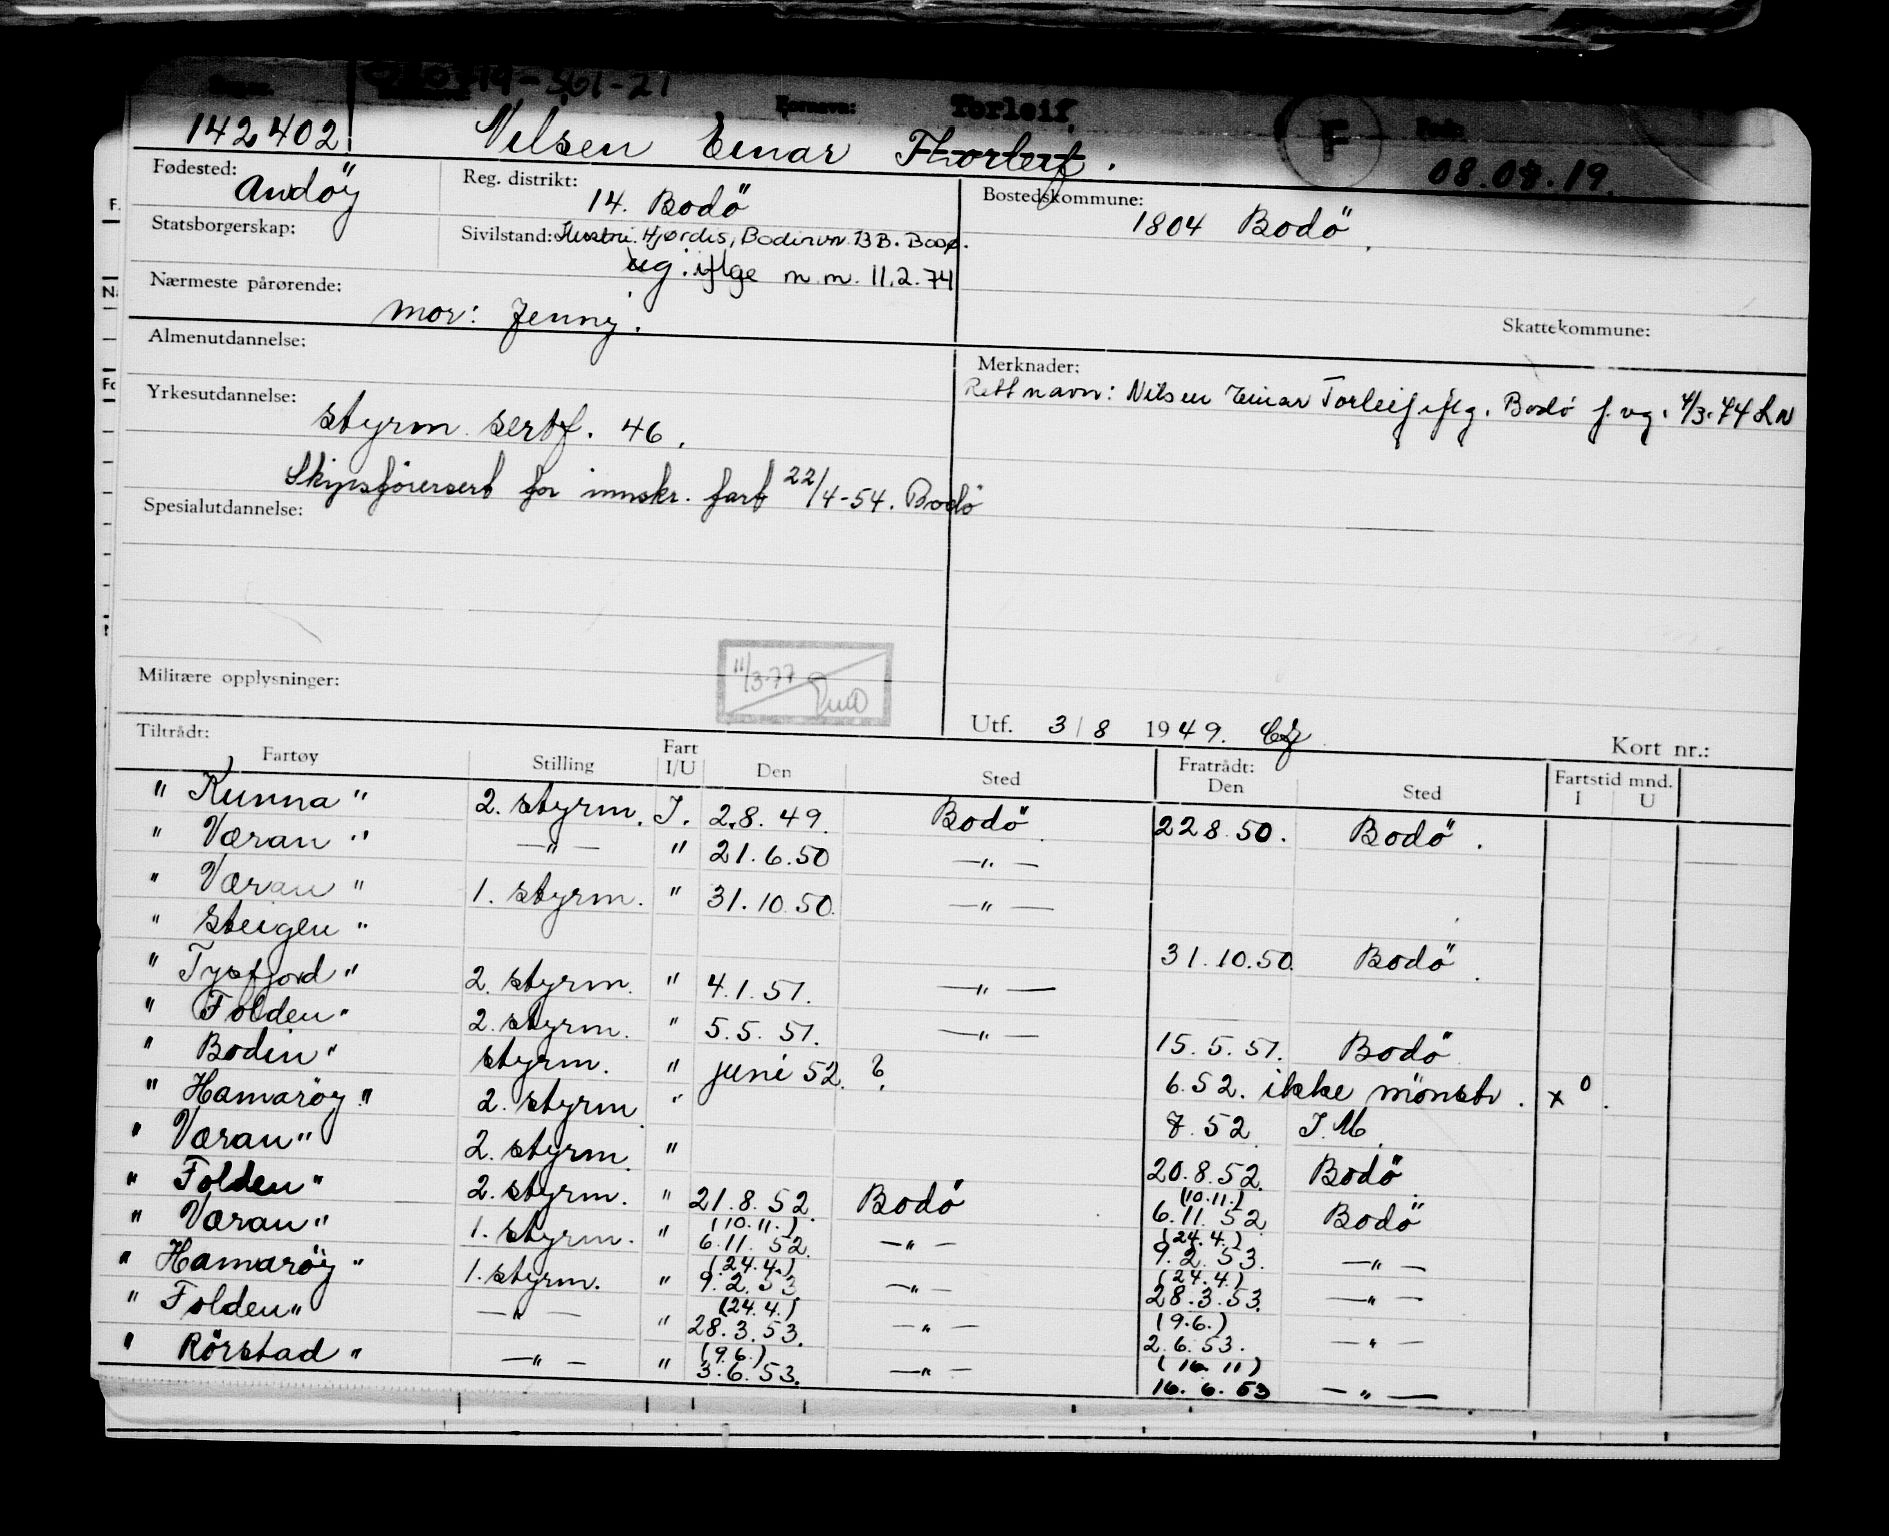 19-561-21
Fornavn: Torleif
F
142402 Nilsen Einar Thorleif.
08.08.19.
Fødested: Andöy
Reg. distrikt: 14. Bodö
Bostedskommune: 1804 Bodö
Statsborgerskap:
Sivilstand: Hustru Hjördis, Bodinvn. 13 B. Bodø.
ug. iflge m.m. 11.2.74
Nærmeste pårørende: mor: Jenny.
Skattekommune:
Almenutdannelse:
Merknader:
Rett navn: Nilsen Einar Torleif iflg. Bodö f. vg. 4/3.74 LN
Yrkesutdannelse: styrm. sertf. 46.
Skipsförersert for innskr. fart 22/4-54. Bodö
Spesialutdannelse:
11/3-77
Militære opplysninger:
Utf. 3/8 1949.
Kort nr.:
Tiltrådt:
Fartøy Stilling Fart I/U Den Sted Fratrådt: Den Sted Fartstid mnd. I U
" Kunna " 2. styrm. I. 2.8.49. Bodö 22 8.50. Bodö.
" Væran " —"— " 21.6.50 —"—
" Væran " 1. styrm. " 31.10.50. —"—
" Steigen " 31.10.50. Bodö.
" Tysfjord " 2. styrm. " 4.1.51. —"—
" Folden " 2. styrm. " 5.5.51. —"— 15.5.51. Bodö
" Bodin " styrm. " juni 52. ? 6.52. ikke mönstr. x 0.
" Hamaröy " 2. styrm. " 7.52 I.M.
" Væran " 2. styrm. " 20.8.52. Bodö
" Folden " 2. styrm. " 21.8.52. Bodö (10.11.) 6.11.52 Bodö
" Væran " 1. styrm. " (10.11.) 6.11.52. —"— (24.4.) 9.2.53. —"—
" Hamaröy " 1. styrm. " (24.4.) 9.2.53 —"— (24.4.) 28.3.53. —"—
" Folden " —"— " (24.4.) 28.3.53. —"— (9.6.) 2.6.53. —"—
" Rörstad " —"— " (9.6.) 3.6.53. —"— (16.11) 16.6.53 —"—